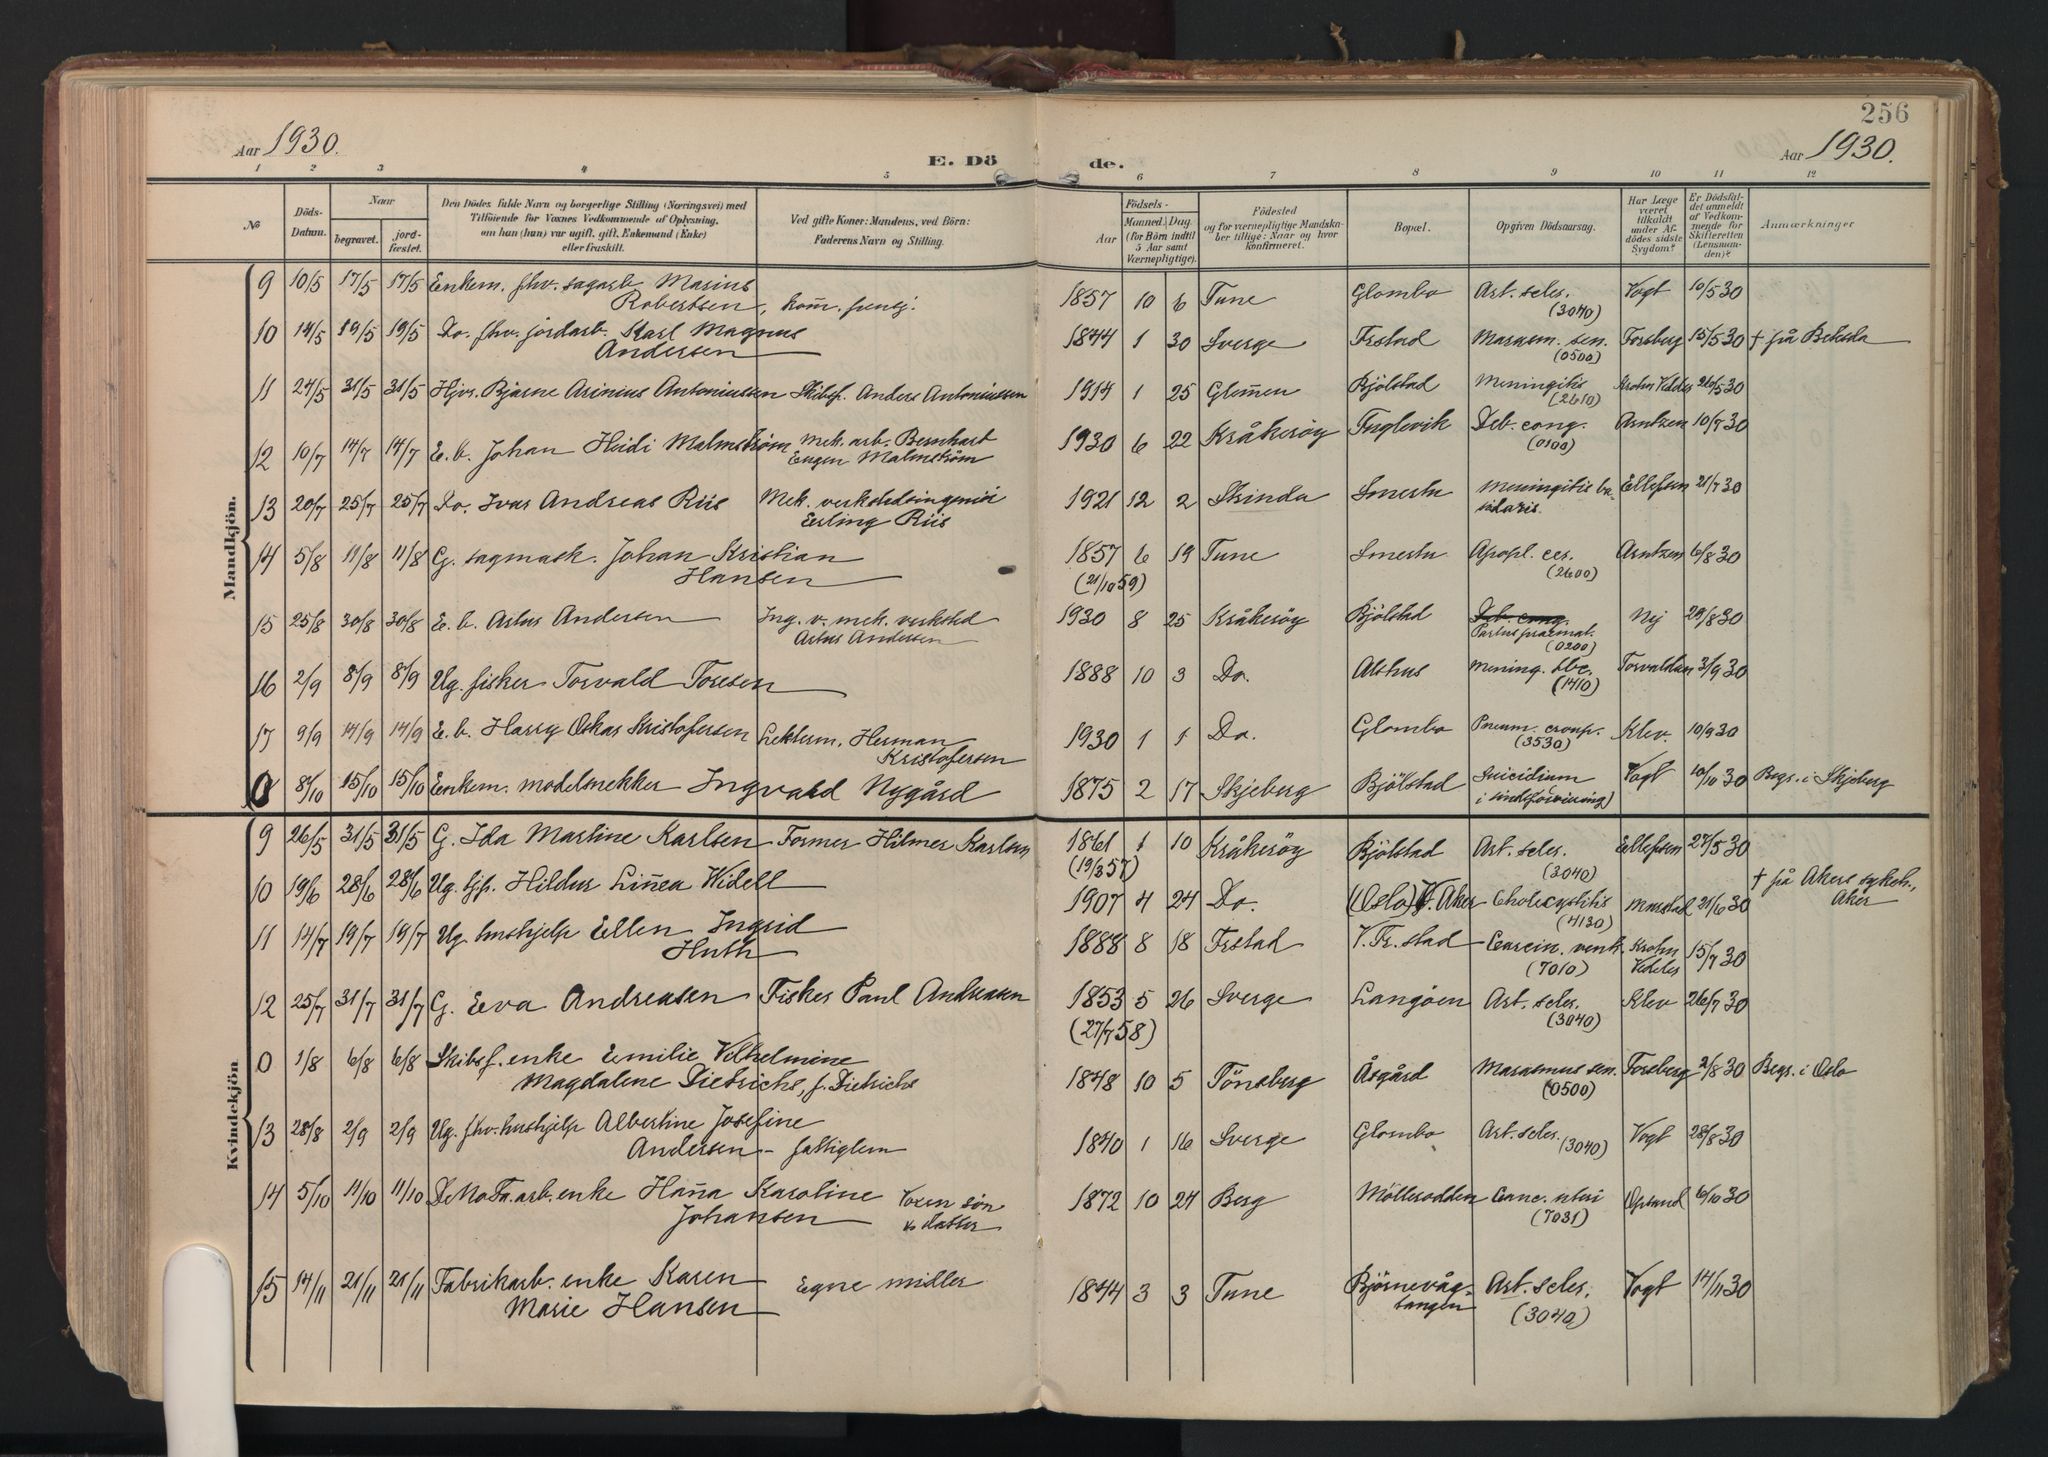 256
Aar 1930.
E. Dö de.
Aar 1930.
1 2 3 4 5 6 7 8 9 10 11 12
№
Döds-Datum.
Naar
begravet.
jord-fæstet.
Den Dödes fulde Navn og borgerlige Stilling (Næringsvei) med
Tilföiende for Voxnes Vedkommende af Oplysning,
om han (hun) var ugift, gift, Enkemand (Enke)
eller fraskilt.
Ved gifte Koner: Mandens, ved Börn:
Faderens Navn og Stilling.
Födsels-
Aar
Maaned. Dag.
(for Börn indtil
5 Aar samt
Værnepligtige).
Födested
og for værnepligtige Mandska-
ber tillige: Naar og hvor
konfirmeret.
Bopæl.
Opgiven Dödsaarsag.
Har Læge
været
tilkaldt
under Af-
dödes sidste
Sygdom?
Er Dödsfal-
det anmeldt
af Vedkom-
mende for
Skifteretten
(Lensman-
den)?
Anmærkninger
Mandkjön.
9 10/5 17/5 17/5 Enkem. fhv. sagarb. Marius
Robertsen, kom. 1857 10 6 Tune Glombo Art. scler. (3040) Vogt 10/5 30
10 14/5 19/5 19/5 Do. fhv. jordarb. Karl Magnus
Andersen 1844 1 30 Sverge Frstad Marasm. sen. (0500) Forsberg 15/5 30 † på Betesda
11 24/5 31/5 31/5 Hjvs. Bjarne Arinius Antoniussen Skibsf. Anders Antoniussen 1914 1 25 Glemmen Bjölstad Meningitis (2610) Krohn 26/5 30
12 10/7 14/7 14/7 E. b. Johan Heidi Malmström Mek. arb. Bernhart
Eugen Malmström 1930 6 22 Kråkeröy Fuglevik Deb. cong. (0100) Arntzen 10/7 30
13 20/7 25/7 25/7 Do. Ivar Andreas Riis Mek. verkstedsingeniör
Erling Riis 1921 12 2 Smertu Meningitis ba-
silaris. Ellefsen 21/7 30
14 5/8 11/8 11/8 G. sagmask. Johan Kristian
Hansen 1857 6 19 Tune Smertu Apopl. cer. (2600) Arntzen 6/8 30
(21/10 59)
15 25/8 30/8 30/8 E. b. Artur Andersen Ing. v. mek. verksted
Artur Andersen 1930 8 25 Kråkeröy Bjölstad Deb. cong.
Partus præmat. (0200) Nej 29/8 30
16 2/9 8/9 8/9 Ug. fisker Torvald Toresen 1888 10 3 Do. Alshus Mening. tbc. (1410) Torvaldsen 3/9 30
17 9/9 14/9 14/9 E. b. Harry Oskar Kristofersen Lekterm. Herman
Kristofersen 1930 1 1 Do. Glombo Pneum. croup. (3530) Klev. 10/9 30
0 8/10 15/10 15/10 Enkem. modelsnekker Ingvald Nygård 1875 2 17 Skjeberg Bjölstad Suicidium
i sindsforvirring) Vogt 10/10 30 Begr. i Skjeberg
Kvindekjön
9 26/5 31/5 31/5 G. Ida Martine Karlsen Former Hilmer Karlsen 1861 1 10 Kråkeröy Bjölstad Art. scler. (3040) Ellefsen 27/5 30
(19/3 57)
10 19/6 28/6 28/6 Ug. Hildur Linnea Widell 1907 4 24 Do. (Oslo) V. Aker Cholecystitis (4130) Marstad 21/6 30 † på Akers sykeh.,
Aker
11 14/7 19/7 19/7 Ug. hushjelp Ellen Ingrid
Huth 1888 8 18 Frstad V. Fr. stad Carcin. ventr. (7010) Krohn 15/7 30
12 25/7 31/7 31/7 G. Eva Andreasen Fisker Paul Andreasen 1853 5 26 Sverge Langöen Art. scler. (3040) Klev 26/7 30
(27/7 58)
0 1/8 6/8 6/8 Skibsf. enke Emilie Vilhelmine
Magdalene Dietrichs, f. Dietrichs 1848 10 5 Tönsberg Åsgård Marasmus sen. (0500) Forsberg 2/8 30 Begr. i Oslo
13 28/8 2/9 2/9 Ug. fhv. hushjelp Albertine Josefine
Andersen - fattiglem 1840 1 16 Sverge Glombo Art. scler. (3040) Vogt 28/8 30
14 5/10 11/10 11/10 enke Hanna Karoline
Johansen Voxen sön
datter 1872 10 24 Berg Möllerodden Canc. uteri (7031) 6/10 30
15 14/11 21/11 21/11 Fabrikarb. enke Karen
Marie Hansen Egne midler 1844 3 3 Tune Björnevåg-
tangen Art. scler. (3040) Vogt 14/11 30